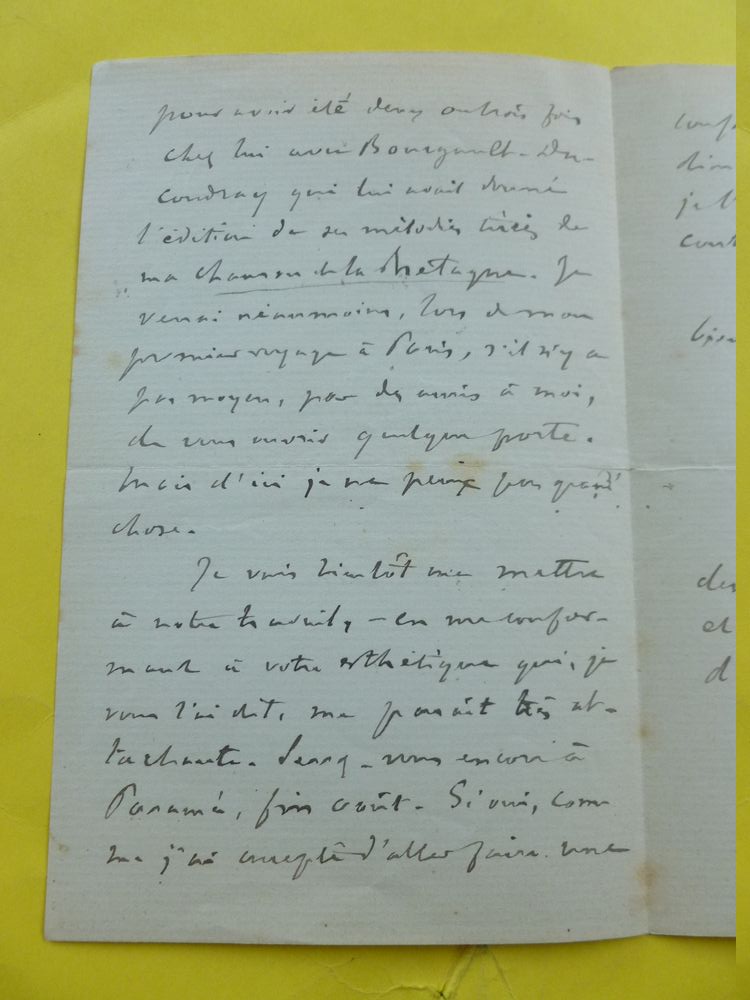 pour avoir été deux ou trois fois
chez lui avec Bourgault-Du-
coudray qui lui avait donné
l'édition de ses mélodies tirées de
ma chanson de la Bretagne. Je
verrai néanmoins, lors de mon
premier voyage à Paris, s'il n'y a
pas moyen, par des amis à moi,
de vous ouvrir quelque porte.
Mais d'ici je ne peux pas grand'
chose.
Je vais bientôt me mettre
à notre travail, – en me confor-
mant à votre esthétique qui, je
vous l'ai dit, me paraît très at-
tachante. Serez-vous encore à
Paramé, fin août. Si oui, com
me j'ai accepté d'aller faire une
conf
dim
je l
cont
des
et
d